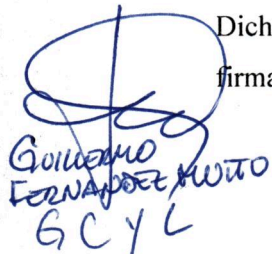 Dich
firma
GUILLERMO
FERNANDEZ
G C y L